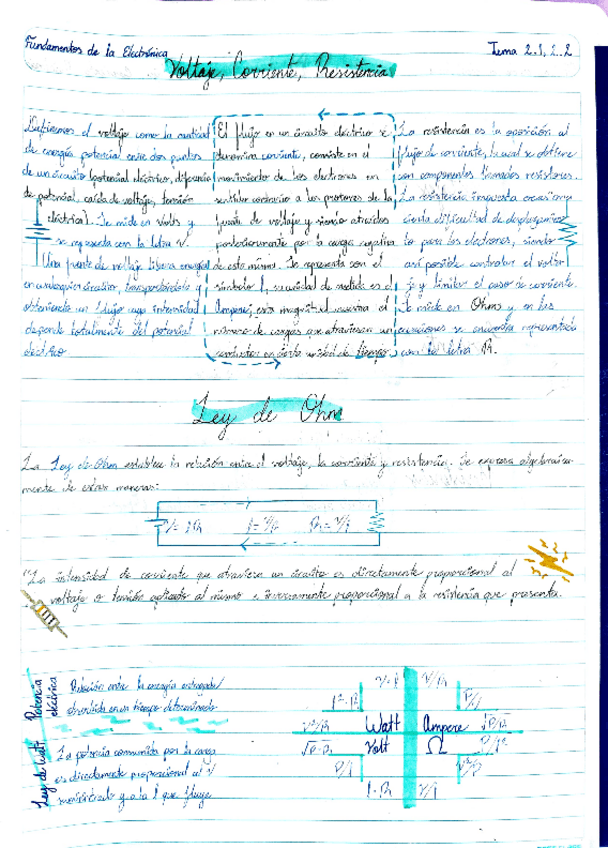 Fundamentos de la Electrónica
Tema 2.1, 2.2
Voltaje, Corriente, Resistencia
Definimos el voltaje como la cantidad
de energía potencial entre dos puntos
de un circuito (potencial eléctrico, diferencia
de potencial, caída de voltaje, tensión
eléctrica). Se mide en Volts y
se representa con la letra V.
Una fuente de voltaje libera energía
en cualquier circuito, transportándolo y
obteniendo un flujo cuya intensidad
depende totalmente del potencial
eléctrico
El flujo en un circuito eléctrico se
denomina corriente, consiste en el
movimiento de los electrones en
sentido contrario a los protones de la
fuente de voltaje y siendo atraídos
posteriormente por la carga negativa
de esta misma. Se representa con el
símbolo I, su unidad de medida es el
Ampere, esta magnitud muestra el
número de cargas que atraviesan un
conductor en cierta unidad de tiempo
La resistencia es la oposición al
flujo de corriente, la cual se obtiene
con componentes llamados resistores.
La resistencia impuesta ocasiona
cierta dificultad de desplazamien
to para los electrones, siendo
así posible controlar el volta
je y limitar el paso de corriente.
Se mide en Ohms y en las
ecuaciones se encuentra representada
con la letra R.
Ley de Ohm
La Ley de Ohm establece la relación entre el voltaje, la corriente y resistencia. Se expresa algebraica-
mente de estas maneras:
V = IR I = V/R R = V/I
"La intensidad de corriente que atraviesa un circuito es directamente proporcional al
voltaje o tensión aplicado al mismo e inversamente proporcional a la resistencia que presenta.
Potencia
eléctrica
Relación entre la energía entregada/
absorbida en un tiempo determinado
Ley de Watt
La potencia consumida por la carga
es directamente proporcional al V
suministrado y a la I que fluye
V·I V/R
I²·R P/V
V²/R Watt Ampere √P/R
√P·R Volt Ω P/I²
P/I V²/P
I·R V/I